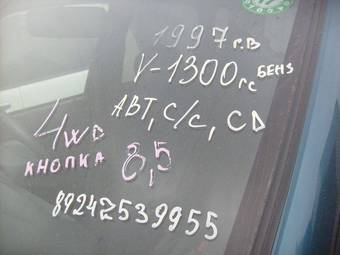 1997 г.в
V-1300 гс БЕНЗ
АВТ, С/С, CD
4WD
КНОПКА 8,5
89242539955